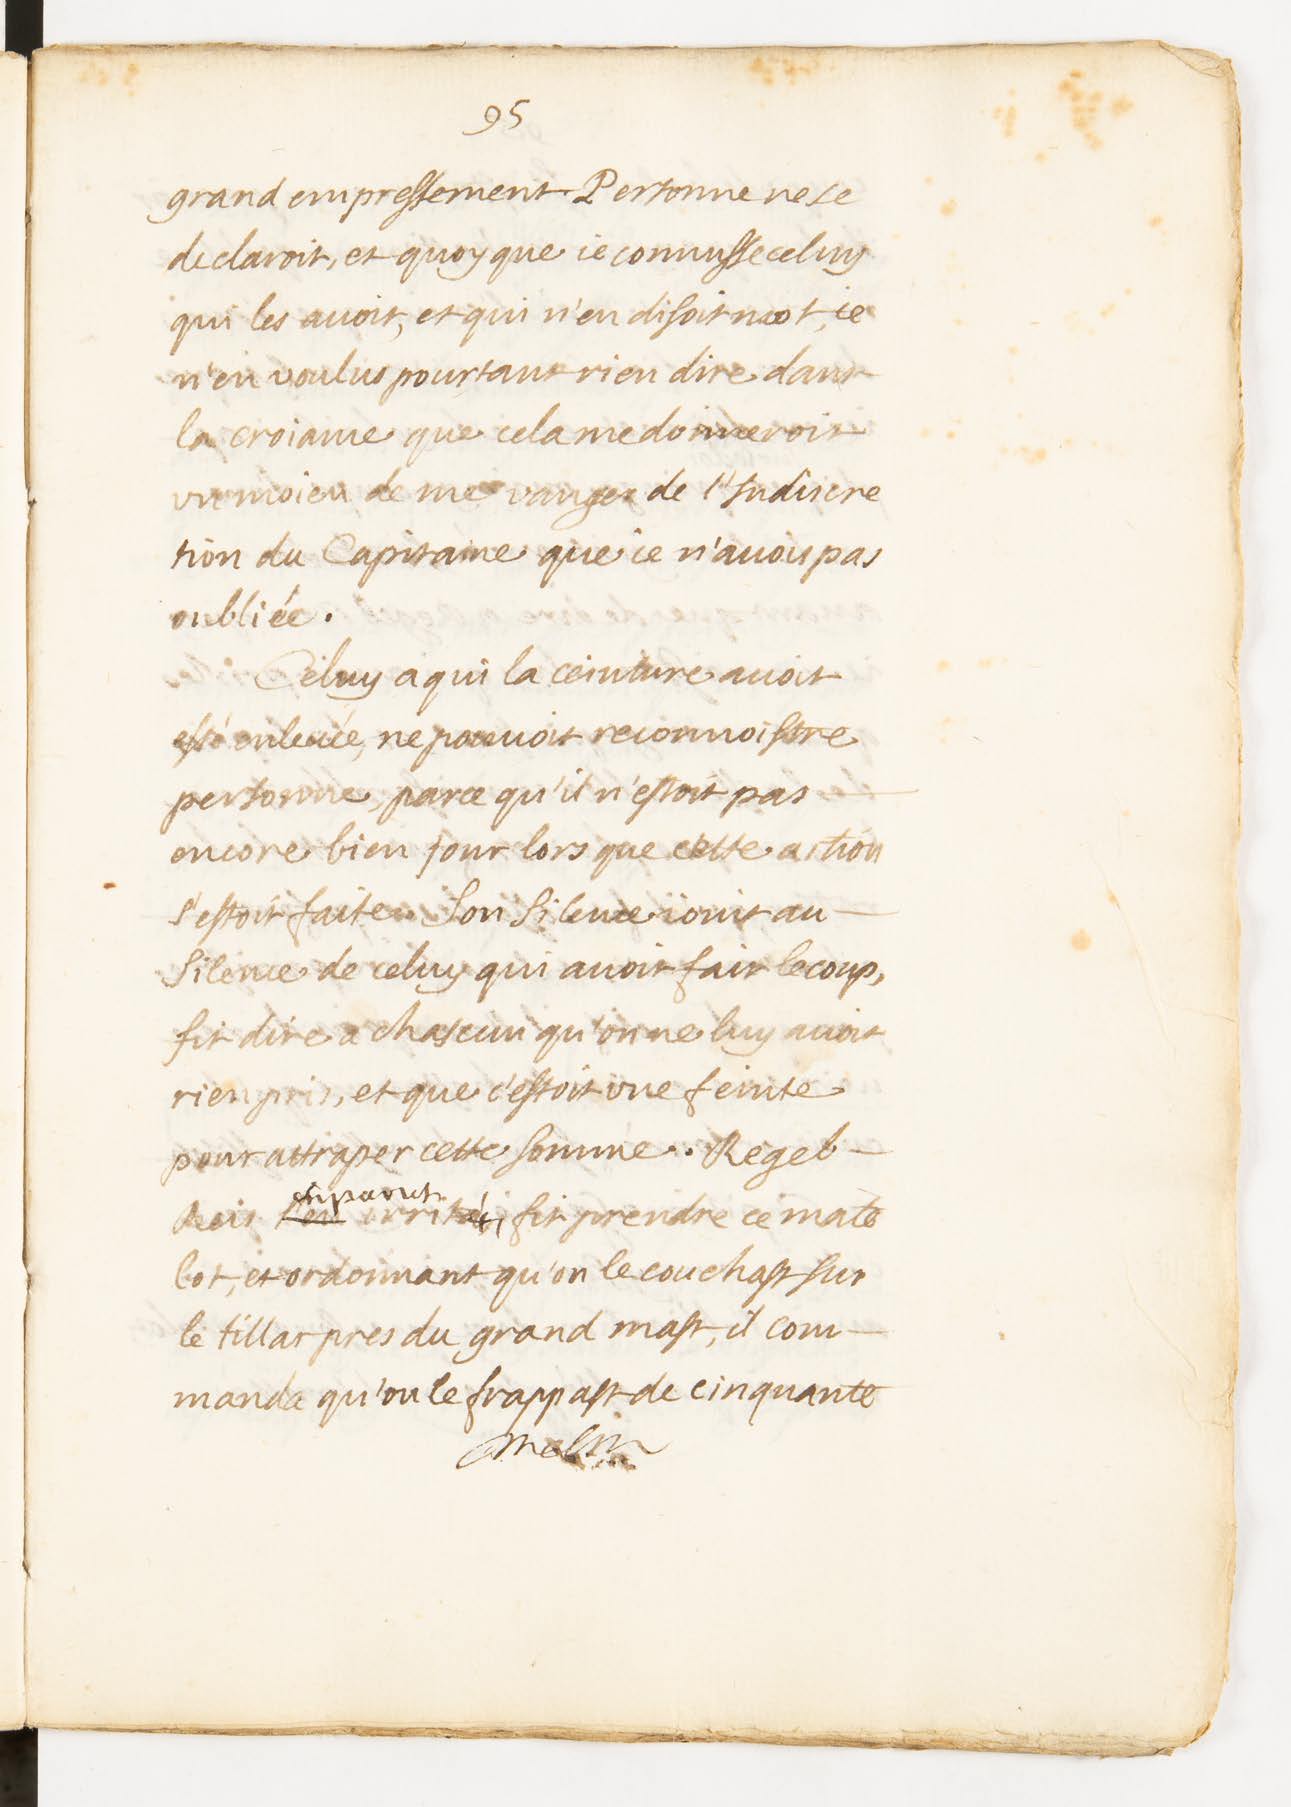 95
grand empressement Personne ne se
declaroit, et quoy que ie connusse celuy
qui les avoit, et qui n'en disoit mot, ie
n'en voulus pourtant rien dire dans
la croiance que cela me donneroit
vn moien de me vanger de l'Indiscre
tion du Capitaine que ie n'auois pas
oubliée.
Celuy a qui la ceinture auoit
esté enleuée, ne pouuoit reconnoistre
personne, parce qu'il n'estoit pas
encore bien jour lors que cette action
s'estoit faite. Son silence ioint au
silence de celuy qui auoit fait le coup,
fit dire a chascun qu'on ne luy auoit
rien pris, et que c'estoit vne feinte
pour attraper cette somme. Regeb
en parut
Reis irrité, fit prendre ce mate
lot, et ordonnant qu'on le couchast sur
le tillar pres du grand mast, il com
manda qu'on le frappast de cinquante